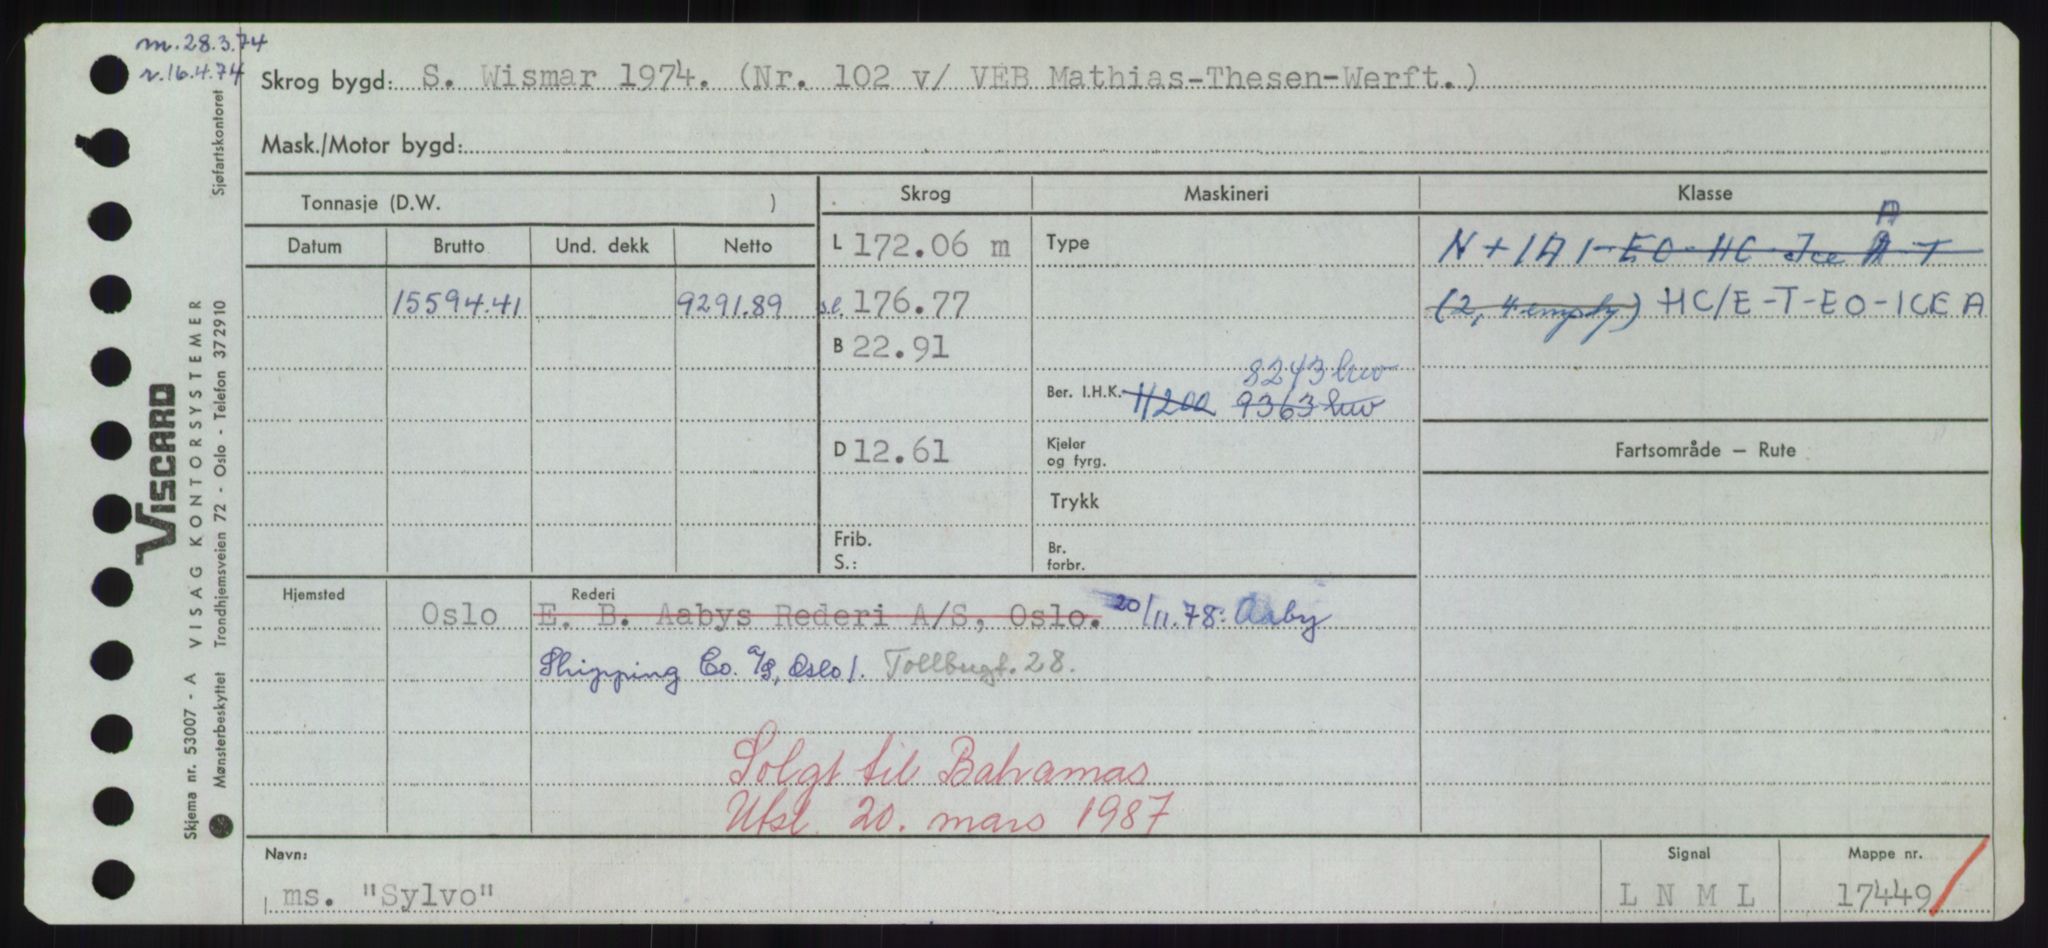 m. 28.3.74
r. 16.4.74
Skrog bygd: S. Wismar 1974. (Nr. 102 v/ VEB Mathias-Thesen-Werft.)
Mask./Motor bygd:
Tonnasje (D.W. )
Skrog
Maskineri
Klasse
Datum
Brutto
Und. dekk
Netto
L 172.06 m
Type
N + 1A1 - EO HC Ice A T
A
15594.41
9291.89
s.l. 176.77
(2, 4 empty) HC/E -T-EO-ICE A
B 22.91
8243 hw
Ber. I.H.K. 11200 9363 hw
D 12.61
Kjeler
og fyrg.
Fartsområde — Rute
Trykk
Frib.
S.:
Br.
forbr.
Hjemsted
Rederi
Oslo
E. B. Aabys Rederi A/S, Oslo. 20/11.78: Aaby
Shipping Co. A/S, Oslo 1. Tollbugt. 28.
Solgt til Bahamas
Utsl. 20. mars 1987
Navn:
ms. "Sylvo"
Signal
L N M L
Mappe nr.
17449
Sjøfartskontoret
VISCARD
VISAG KONTORSYSTEMER
Trondhjemsveien 72 - Oslo - Telefon 372910
Skjema nr. 53007 - A
Mønsterbeskyttet